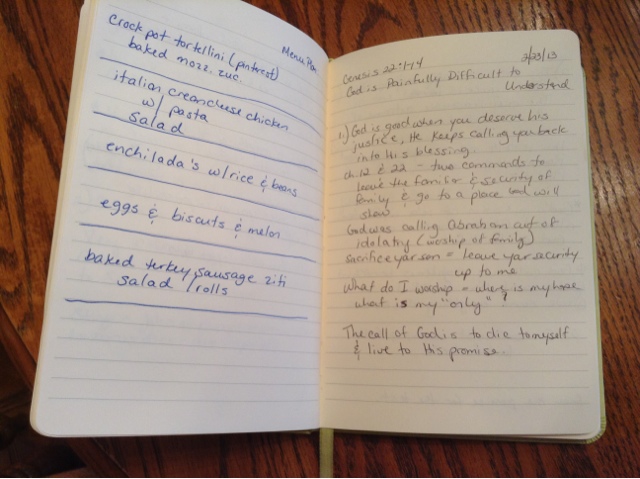 Menu Plan
Crockpot tortellini (pintrest)
baked mozz. zuc.
italian creamcheese chicken
w/ pasta
salad
enchilada's w/rice & beans
eggs & biscuts & melon
baked turkey sausage ziti
salad /rolls
Genesis 22:1-14 2/23/13
God is Painfully Difficult to
Understand
1.) God is good when you deserve his
justice, He keeps calling you back
into His blessing.
ch. 12 & 22 - two commands to
leave the familiar & security of
family & go to a place God will
show
God was calling Abraham out of
idolatry (worship of family)
sacrifice your son = leave your security
up to me
What do I worship = where is my hope
what is my "only"?
The call of God is to die to myself
& live to His promise.